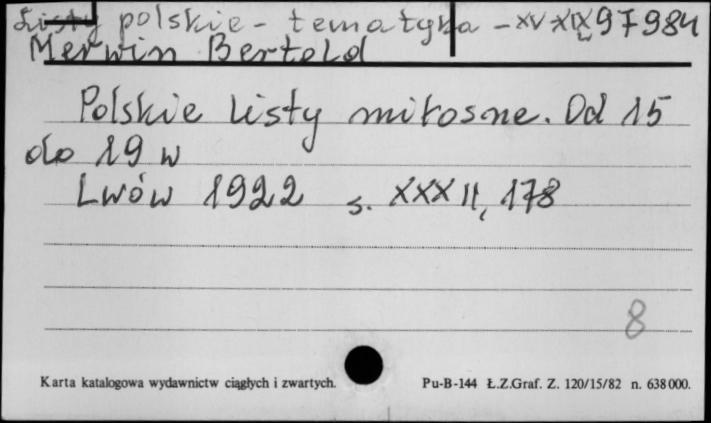 Listy polskie - tematyka - XV-XIX w 97984
Merwin Bertold
Polskie listy miłosne. Od 15
do 19 w
Lwów 1922 s. XXXII, 178
8
Karta katalogowa wydawnictw ciągłych i zwartych.
Pu-B-144 Ł.Z.Graf. Z. 120/15/82 n. 638000.